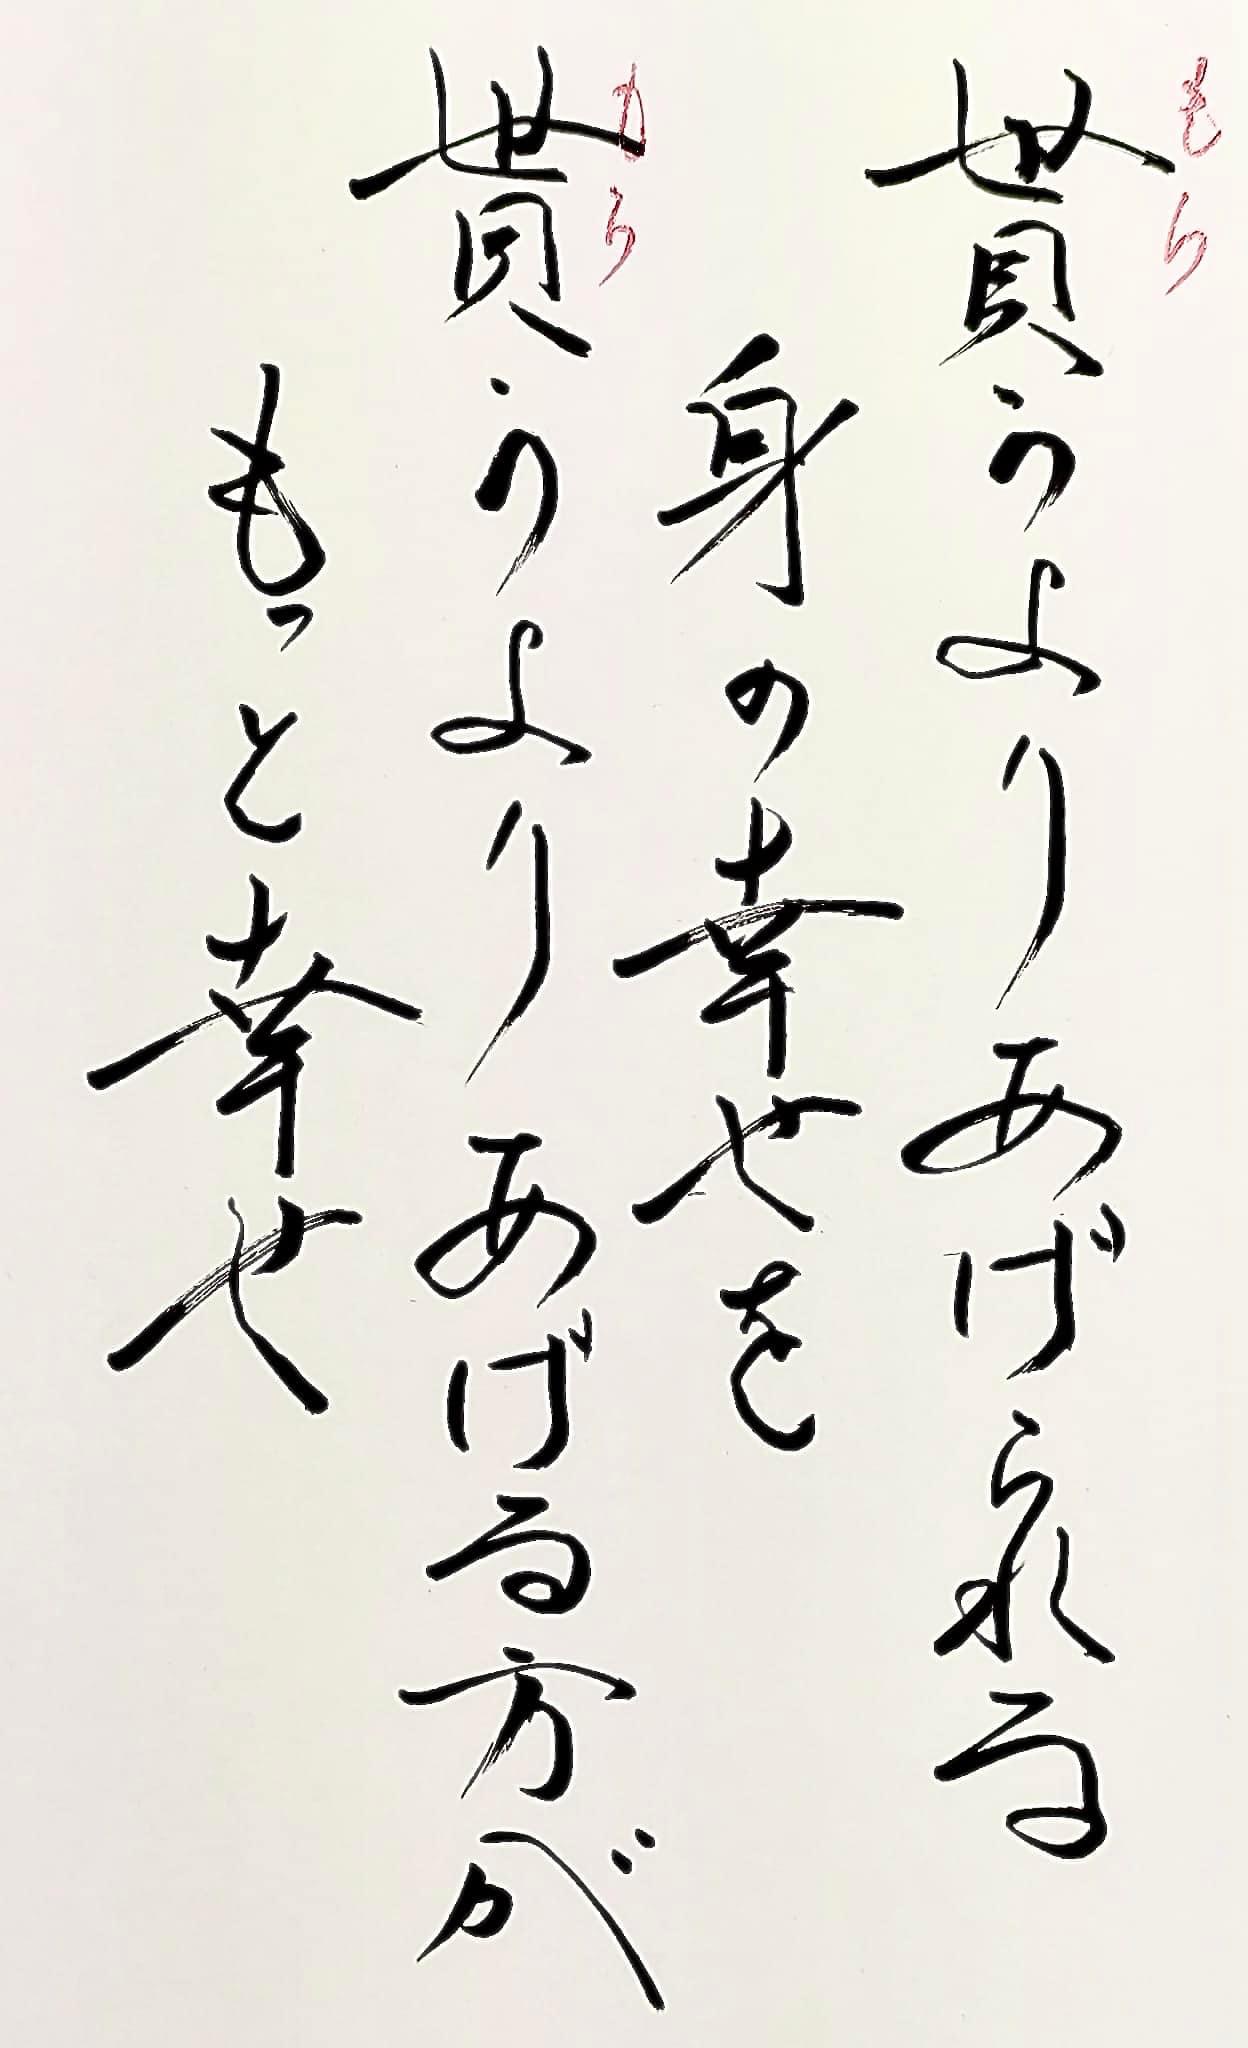 もら
貰うよりあげられる
身の幸せを
もら
貰うよりあげる方が
もっと幸せ